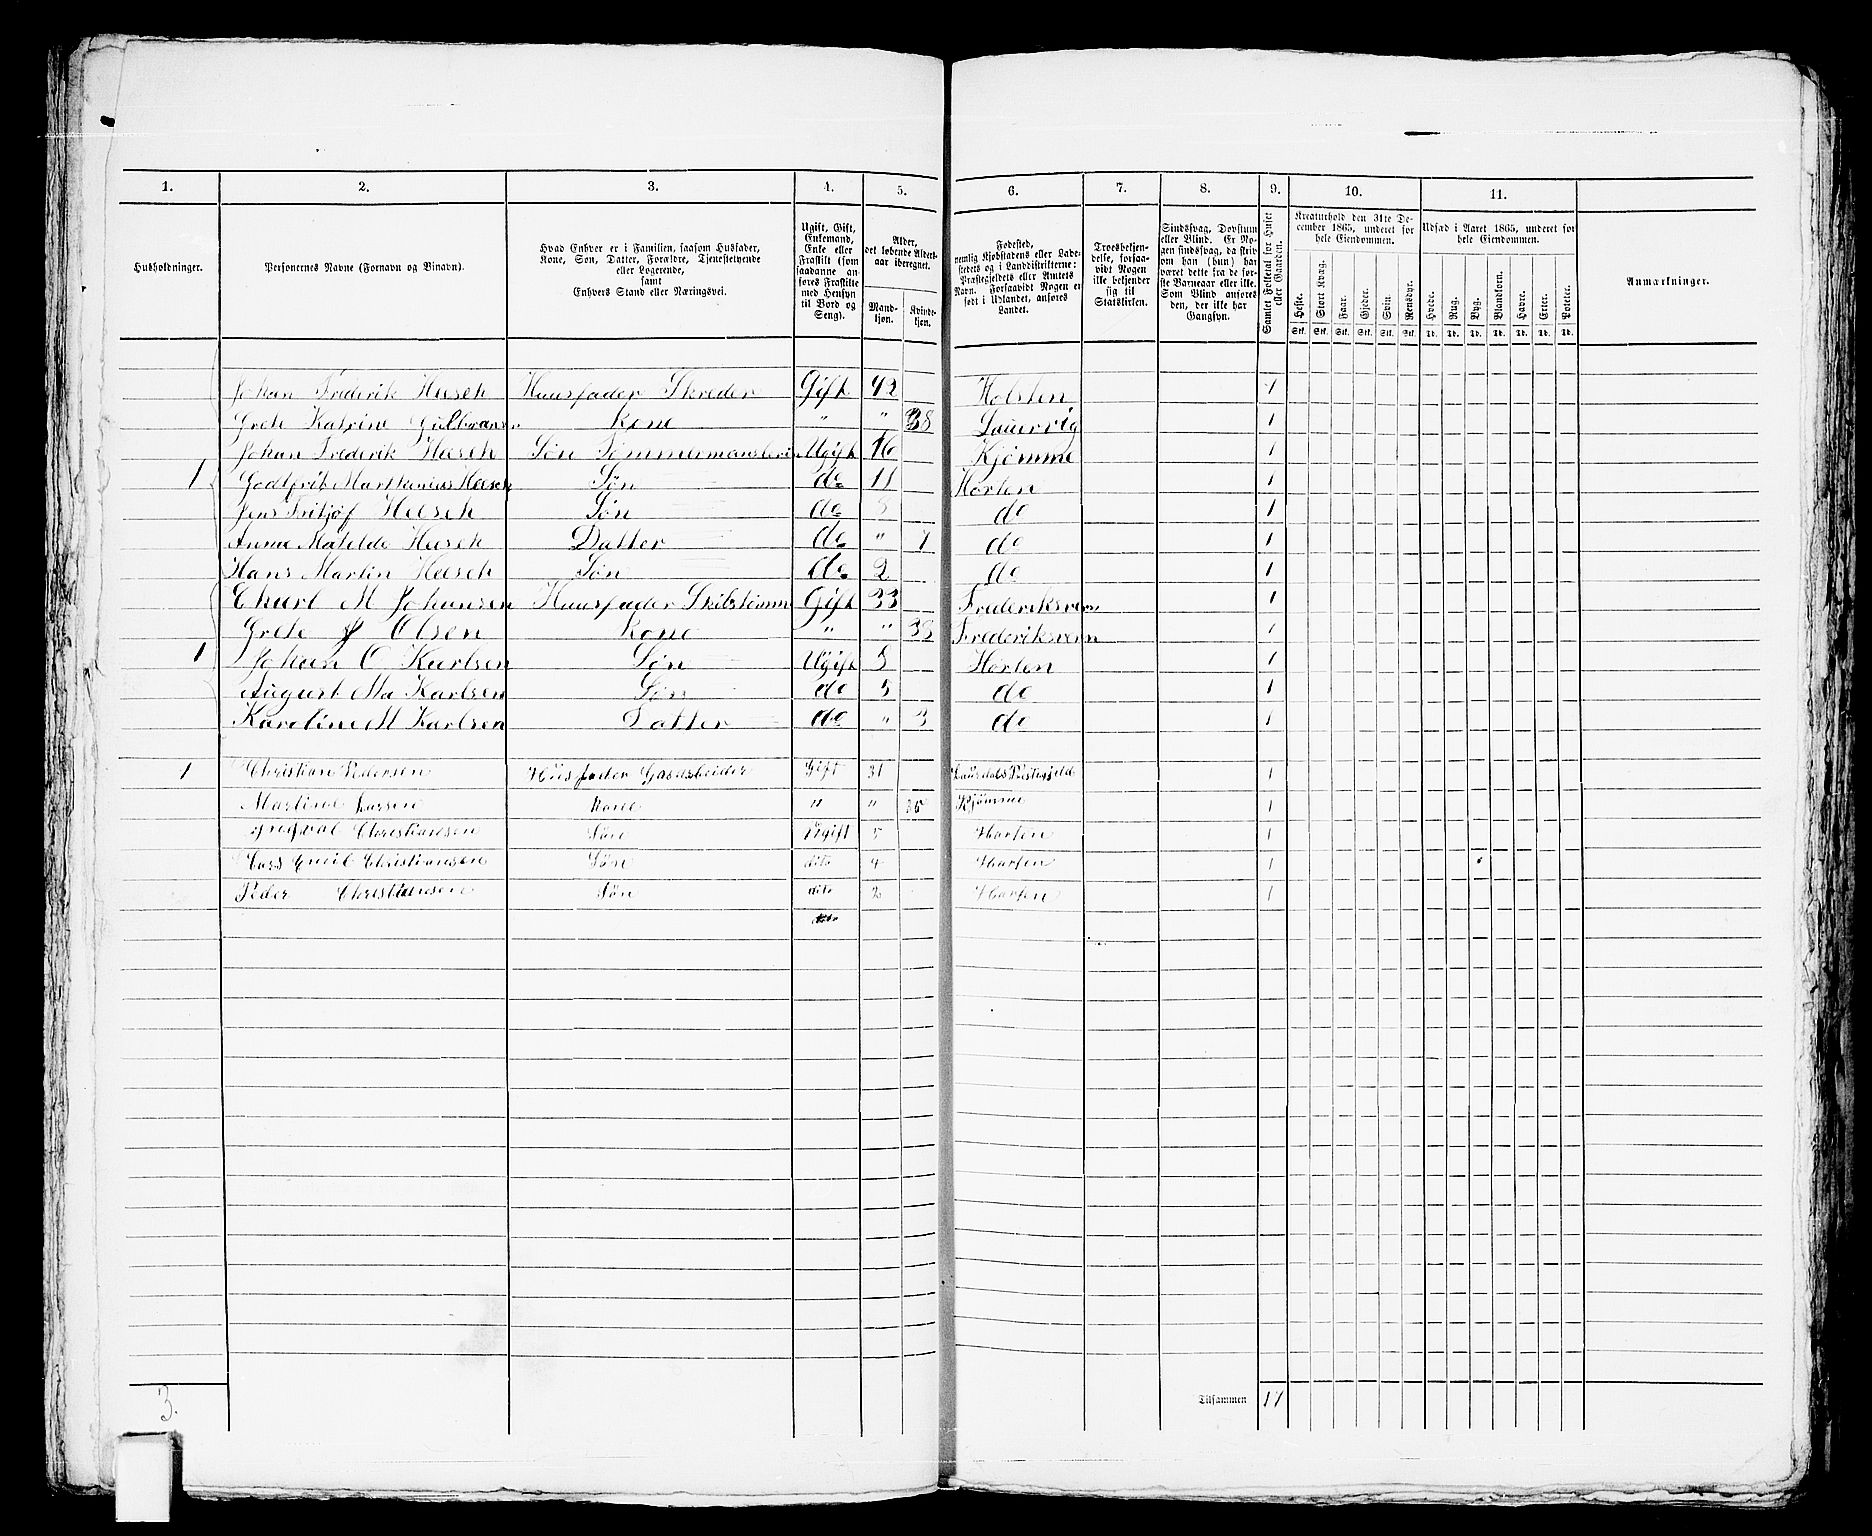 1. 2. 3. 4. 5. 6. 7. 8. 9. 10. 11.
Husholdninger.
Personernes Navne (Fornavn og Binavn).
Hvad Enhver er i Familien, saasom Husfader,
Kone, Søn, Datter, Forældre, Tjenestetyende
eller Logerende,
samt
Enhvers Stand eller Næringsvei.
Ugift, Gift,
Enkemand,
Enke eller
Fraskilt (som
saadanne an-
føres Fraskilte
med Hensyn
til Bord og
Seng).
Alder,
det løbende Alders-
aar iberegnet.
Mand-
kjøn.
Kvinde-
kjøn.
Fødested,
nemlig Kjøbstadens eller Lade-
stedets og i Landdistrikterne:
Præstegjeldets eller Amtets
Navn. Forsaavidt Nogen er
født i Udlandet, anføres
Landet.
Troesbekjen-
delse, forsaa-
vidt Nogen
ikke bekjender
sig til
Statskirken.
Sindssvag, Døvstum
eller Blind. Er No-
gen sindssvag, da skriv
om han (hun) har
været dette fra de før-
ste Barneaar eller ikke.
Som Blind anføres
den, der ikke har
Gangsyn.
Samlet Folketal for Huset
eller Gaarden.
Kreaturhold den 31te De-
cember 1865, underet for
hele Eiendommen.
Heste. Stort Kvæg. Faar. Gjeder. Svin. Rensdyr.
Stk. Stk. Stk. Stk. Stk. Stk.
Udsæd i Aaret 1865, underet for
hele Eiendommen.
Hvede. Rug. Byg. Blandkorn. Havre. Erter. Poteter.
Td. Td. Td. Td. Td. Td. Td.
Anmærkninger.
Johan Frederik Heesch Huusfader Skreder Gift 42 Holsten 1
Grete Katrine Kone " " 38 Laurvig 1
Johan Frederik Heesch Søn Ugift 16 Kjømme 1
1 Heesch Søn do 11 Horten 1
Jens Fritjof Heesch Søn do do 1
Anne Matilde Heesch Datter do " 7 do 1
Hans Martin Heesch Søn do 2 do 1
Charl M Johansen Huusfader Skibstømm Gift 33 Frederiksvern 1
Grete J Olsen Kone " " 38 Frederiksvern 1
1 Johan O Karlsen Søn Ugift 5 Horten 1
August Ma Karlsen Søn do 5 do 1
Karoline M Karlsen Datter do " 3 do 1
1 Christian Pedersen Husfader Gift 31 1
Martine Larsen Kone " " Kjømme 1
Christiansen Søn Ugift 5 Horten 1
Lars Emil Christiansen Søn dito 4 Horten 1
Peder Christiansen Søn dito 2 Horten 1
Tilsammen 17
3.